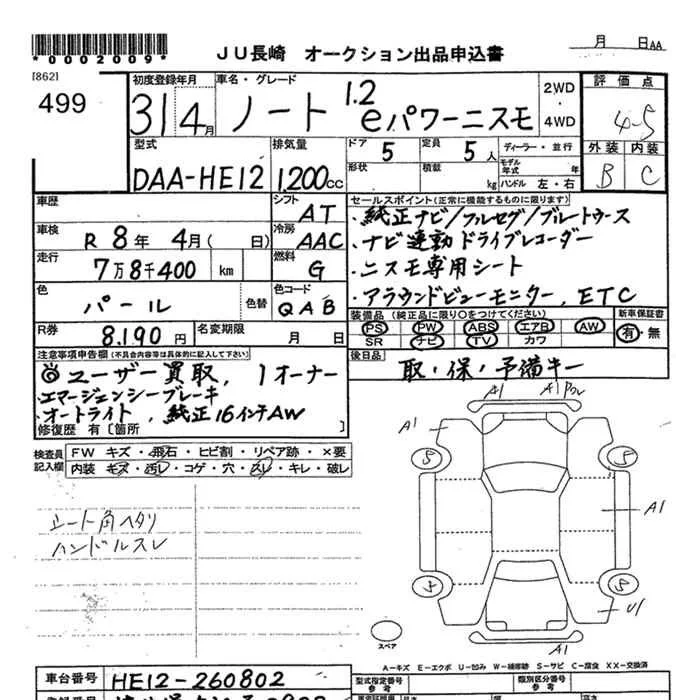 *0002009*
JU長崎 オークション出品申込書
月 日AA
[862]
499
初度登録年月 31 4月
車名・グレード ノート 1.2 eパワーニスモ
2WD・4WD
評価点 4-5
外装 内装
B C
型式 DAA-HE12
排気量 1,200cc
ドア 5 定員 5人
形状 積載 kg
ディーラー・並行
モデル年式 年
ハンドル 左・右
車歴
シフト AT
車検 R 8年 4月( 日)
冷房 AAC
走行 7万8千400 km
燃料 G
色 パール 色替
色コード QAB
R券 8,190円
名変期限 月 日
セールスポイント(正常に機能するものに限ります)
・純正ナビ/フルセグ/ブルートゥース
・ナビ連動ドライブレコーダー
・ニスモ専用シート
・アラウンドビューモニター, ETC
装備品(純正品に限り○をつけてください)
PS PW ABS エアB AW
SR ナビ TV カワ
新車保証書
有・無
後日品 取・保・予備キー
注意事項申告欄(不具合内容等は具体的に記入して下さい)
◎ユーザー買取, 1オーナー
・エマージェンシーブレーキ
・オートライト, 純正16インチAW
修復歴 有[箇所 ]
検査員記入欄
FW キズ・飛石・ヒビ割・リペア跡・×要
内装 キズ・汚レ・コゲ・穴・スレ・キレ・破レ
シート角ヘタリ
ハンドルスレ
A1 A1
A1
5 5
A1
5 5
U1
A1
スペア
A-キズ E-エクボ U-凹み W-補修跡 S-サビ C-腐食 XX-交換済
車台番号 HE12-260802
型式指定番号 参考
類別区分番号 参考